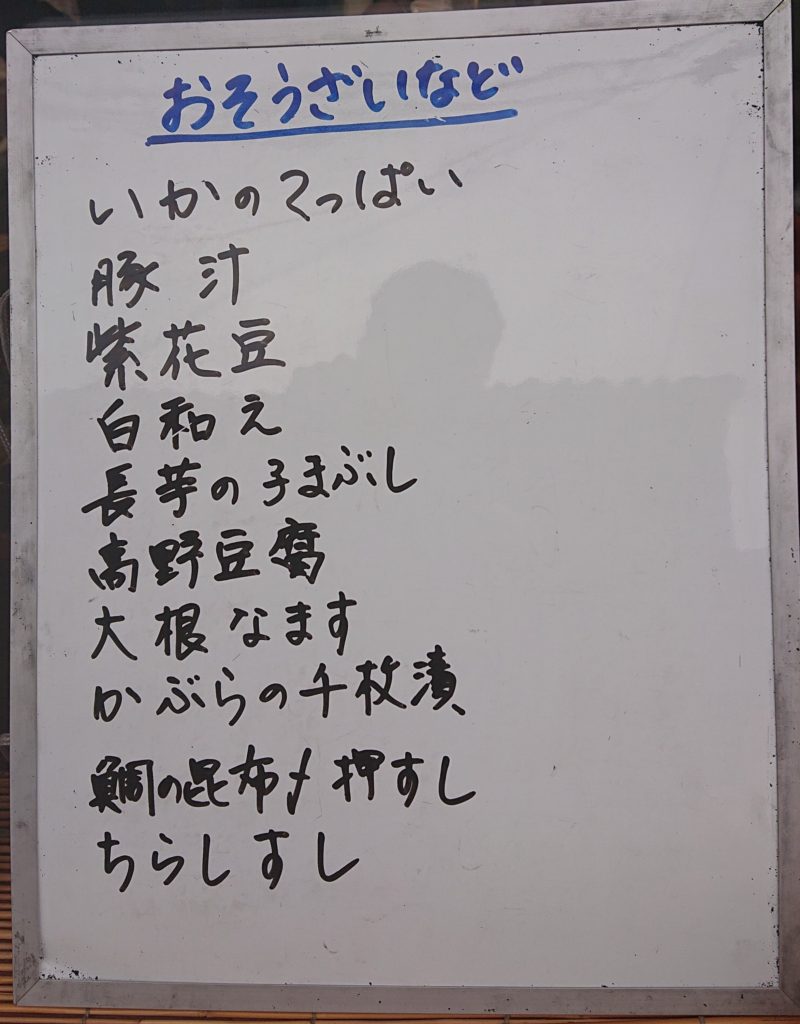 おそうざいなど
いかのてっぱい
豚汁
紫花豆
白和え
長芋の子まぶし
高野豆腐
大根なます
かぶらの千枚漬
鯛の昆布〆押すし
ちらしすし